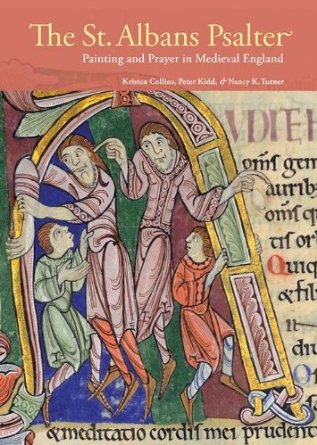 The St. Albans Psalter
Painting and Prayer in Medieval England
Kristen Collins, Peter Kidd, & Nancy K. Turner
om̄s gen
aurib
om̄s q
tis or
Quiq
&fil
&meditatio cordis mei prudenti